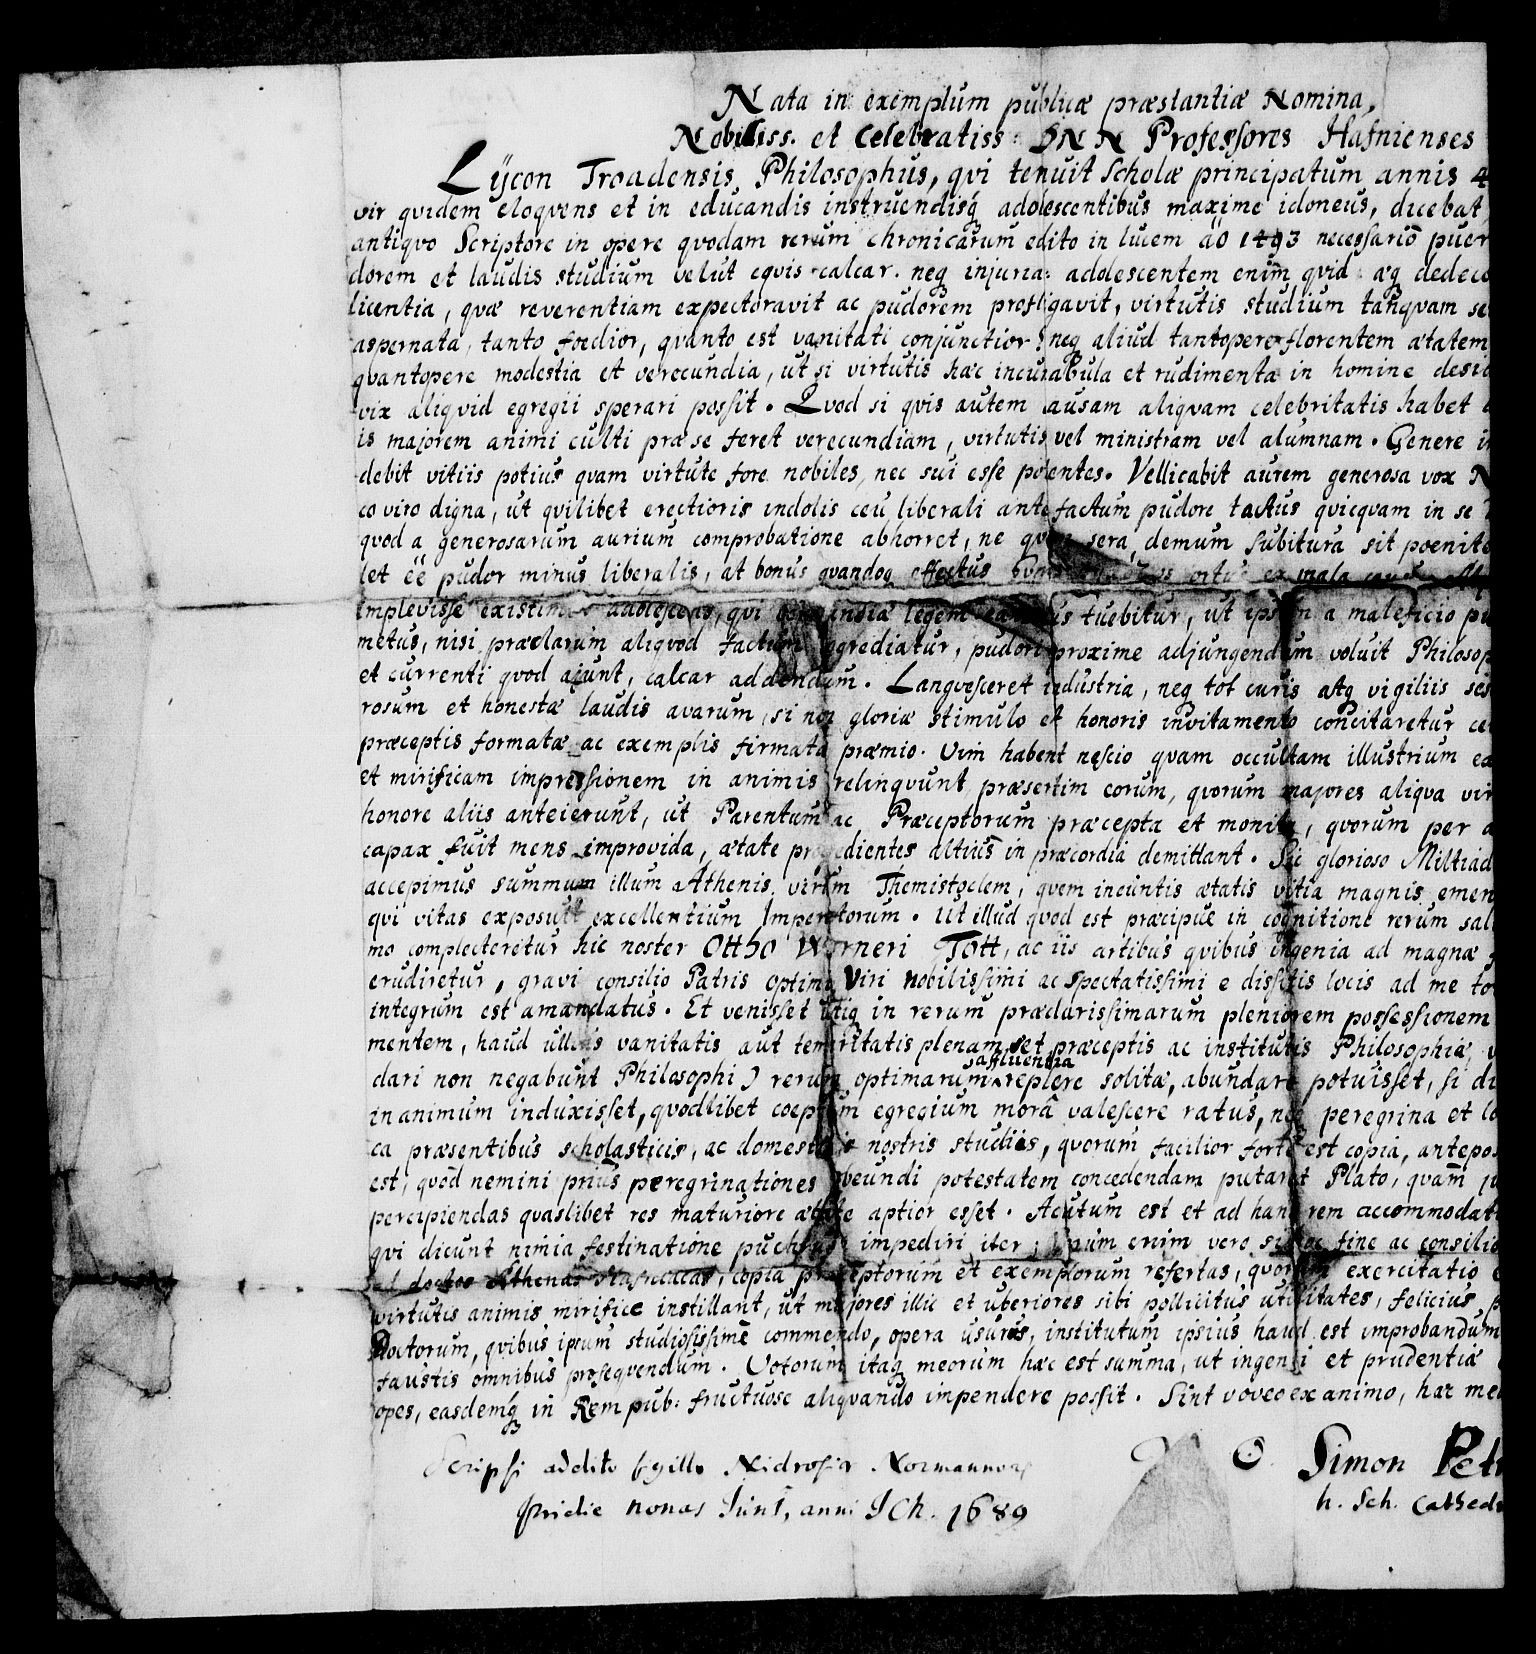 Nata in exemplum publicæ præstantiæ Nomina,
Nobiliss. et Celebratiss: DNN Professores Hafnienses
Lÿcon Troadensis Philosophus, qvi tenuit Scholæ principatum annis 4
vir qvidem eloqvens et in educandis instruendisq́ adolescentibus maxime idoneus, dicebat,
antiqvo Scriptore in opere qvodam rerum chronicarum edito in lucem aõ 1493 necessariō puer
dorem et laudis studium velut eqvis calcar. neq injuria: adolescentem enim qvid æq dedeco
licentia, qvæ reverentiam expectoravit ac pudorem profligavit, virtutis studium tanqvam se
aspernata, tanto foedior, qvanto est vanitati conjunctior: neq aliud tantopere florentem ætatem
qvantopere modestia et verecundia, ut si virtutis hæc incunabula et rudimenta in homine desid
vix aliqvid egregii sperari possit. Qvod si qvis autem causam aliqvam celebritatis habet
is majorem animi culti præ se feret verecundiam, virtutis vel ministram vel alumnam. Genere in
debit vitiis potius qvam virtute fore nobiles, nec sui esse potentes. Vellicabit aurem generosa vox N
co viro digna, ut qvilibet erectioris indolis ceu liberali ante factum pudore tactus qvicqvam in se
qvod a generosarum aurium comprobatione abhorret, ne qvem sera demum subitura sit poenite
let ēē pudor minus liberalis, at bonus qvandoq effectus ortus ex mala
implevisse adolescens, qvi legem tuebitur, ut ipsum a maleficio pu
metus, nisi præclarum aliqvod factum aggrediatur, pudori proxime adjungendum voluit Philosop
et currenti qvod ajunt, calcar addendum. Langvesceret industria, neq tot curis atq vigiliis ses
rosum et honestæ laudis avarum, si non gloriæ stimulo et honoris invitamento concitaretur ce
præceptis formatæ ac exemplis firmata præmio. Vim habent nescio qvam occultam illustrium ea
et mirificam impressionem in animis relinqvunt præsertim eorum, qvorum majores aliqva vir
honore aliis anteierunt, ut Parentum ac Præceptorum præcepta et monita, qvorum per a
capax fuit mens improvida, ætate progredientes altius in præcordia demittant. Sic glorioso Miltiad
accepimus summum illum Athenis virum Themistoclem, qvem ineuntis ætatis vitia magnis emen
qvi vitas exposuit excellentium Imperatorum. Ut illud qvod est præcipue in cognitione rerum sal
mo complecteretur hic noster Otto Werneri Tott, ac iis artibus qvibus ingenia ad magna
erudiretur, gravi consilio Patris optimi Viri nobilissimi ac spectatissimi e dissitis locis ad me to
integrum est amandatus. Et venisset utiq in rerum præclarissimarum pleniorem possessionem
mentem, haud ullius vanitatis aut temeritatis plenam set præceptis ac institutis Philosophiæ, v
dari non negabunt Philosophi) rerum optimarum affluentia replere solitæ, abundare potuisset, si di
in animum induxisset, qvodlibet coeptum egregium morâ valescere ratus, nec peregrina et lo
ca præsentibus scholasticis, ac domesticis nostris studiis, qvorum facilior forte est copia, antepos
est, qvod nemini prius peregrinationes obeundi potestatem concedendam putaret Plato, qvam
percipiendas qvaslibet res maturiore ætate aptior esset. Acutum est et ad hanc rem accommodat
qvi dicunt nimia festinatione pulchrum impediri iter; Ipsum enim vero sine fine ac consilio
doctas Athenas Hafniacas, copia præceptorum et exemplorum refertas, qvorum exercitatio
virtutis animis mirifice instillant, ut majores illic et uberiores sibi pollicitus utilitates, felicius
Doctorum, qvibus ipsum studiosissimē commendo, opera usurus, institutum ipsius haud est improbandum
faustis omnibus proseqvendum. Votorum itaq meorum hæc est summa, ut ingenii et prudentiæ
opes, easdemq́ in Rempub: fructuose aliqvando impendere possit. Sint voveo ex animo, hac me
Scripsi addito sigillo Nidrosiæ Normannor
pridie nonas Iunī, anni ICh. 1689
Simon Pet
h. Sch. Cathedr